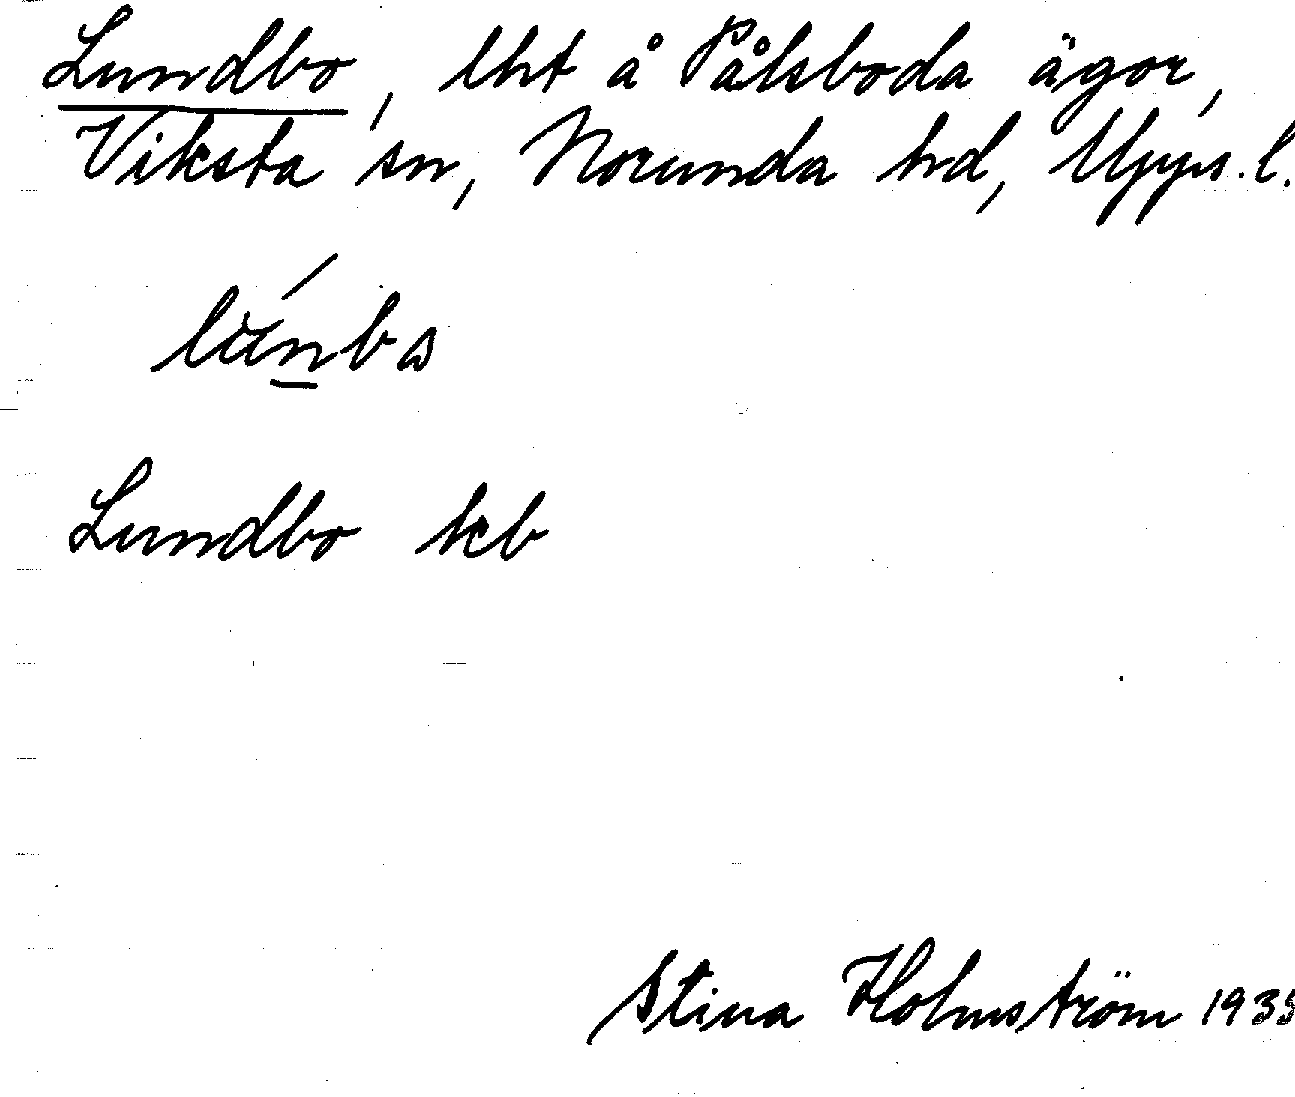 Lundbo, lht å Pålsboda ägor,
Viksta sn, Norunda hd, Upps. l.
lúnbɷ
Lundbo kb
Stina Holmström 1935